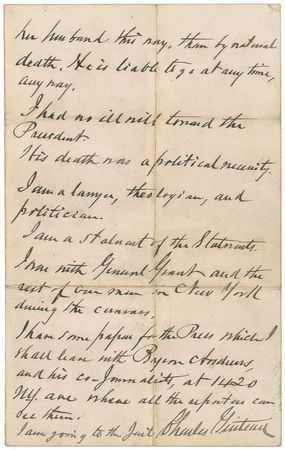 her husband this way, than by natural
death. He is liable to go at any time,
any way.
I had no ill will toward the
President
His death was a political necessity.
I am a lawyer, theologian, and
politician.
I am a stalwart of the Stalwarts.
I was with General Grant and the
rest of our men in New York
during the canvass.
I have some papers for the Press which I
shall leave with Byron Andrews,
and his co-Journalists, at 1420
N.Y. ave where all the reporters can
see them.
I am going to the Jail
Charles Guiteau